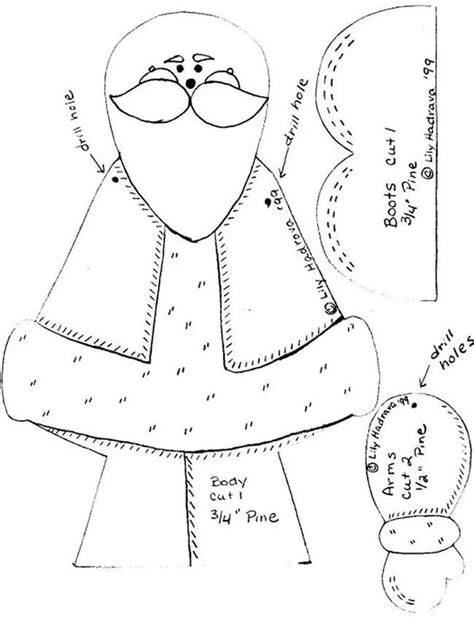 drill hole
drill hole
Boots Cut 1
3/4" Pine
© Lily Hadrava '99
© Lily Hadrava
'99
drill
holes
© Lily Hadrava '99
Arms
Cut 2
1/2" Pine
Body
Cut 1
3/4" Pine